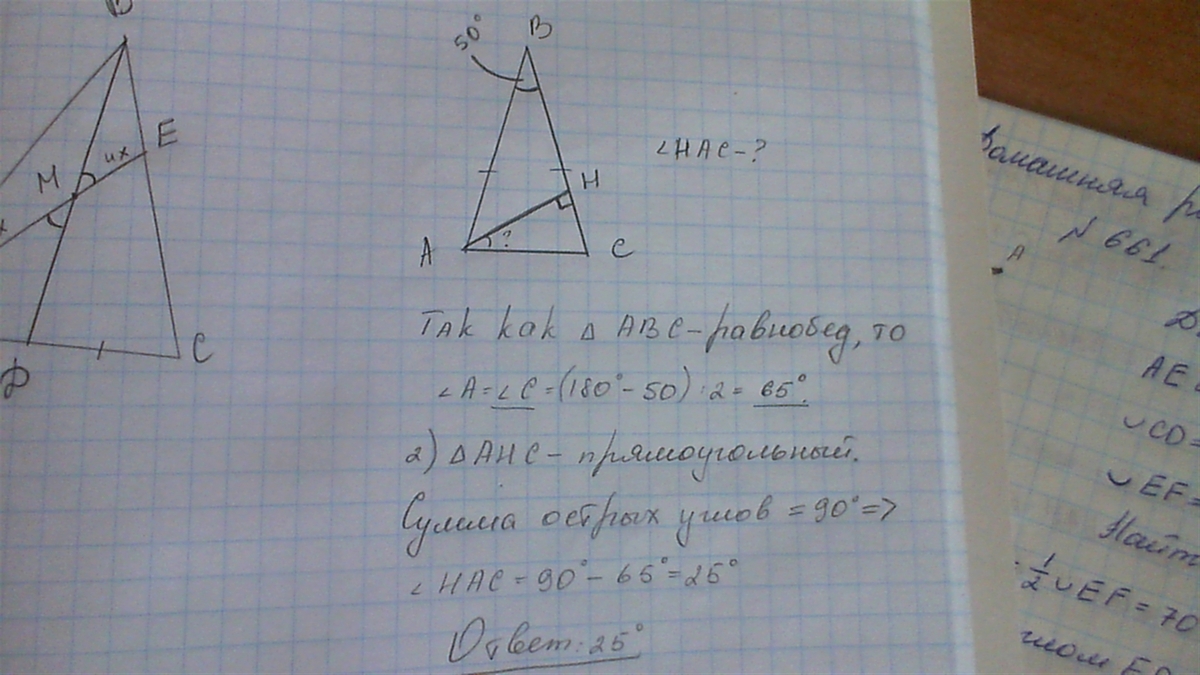 M
4x
E
D
C
x
50°
B
∠HAC-?
H
A
?
C
Так как △ ABC-равнобед, то
∠A=∠C=(180°-50):2=65°.
2) △AHC- прямоугольный.
Сумма острых углов =90°=>
∠HAC=90°-65°=25°
Ответ: 25°
Домашняя
№ 661.
A
AE
∪CD=
∪EF=
Найт
1/2 ∪EF=70